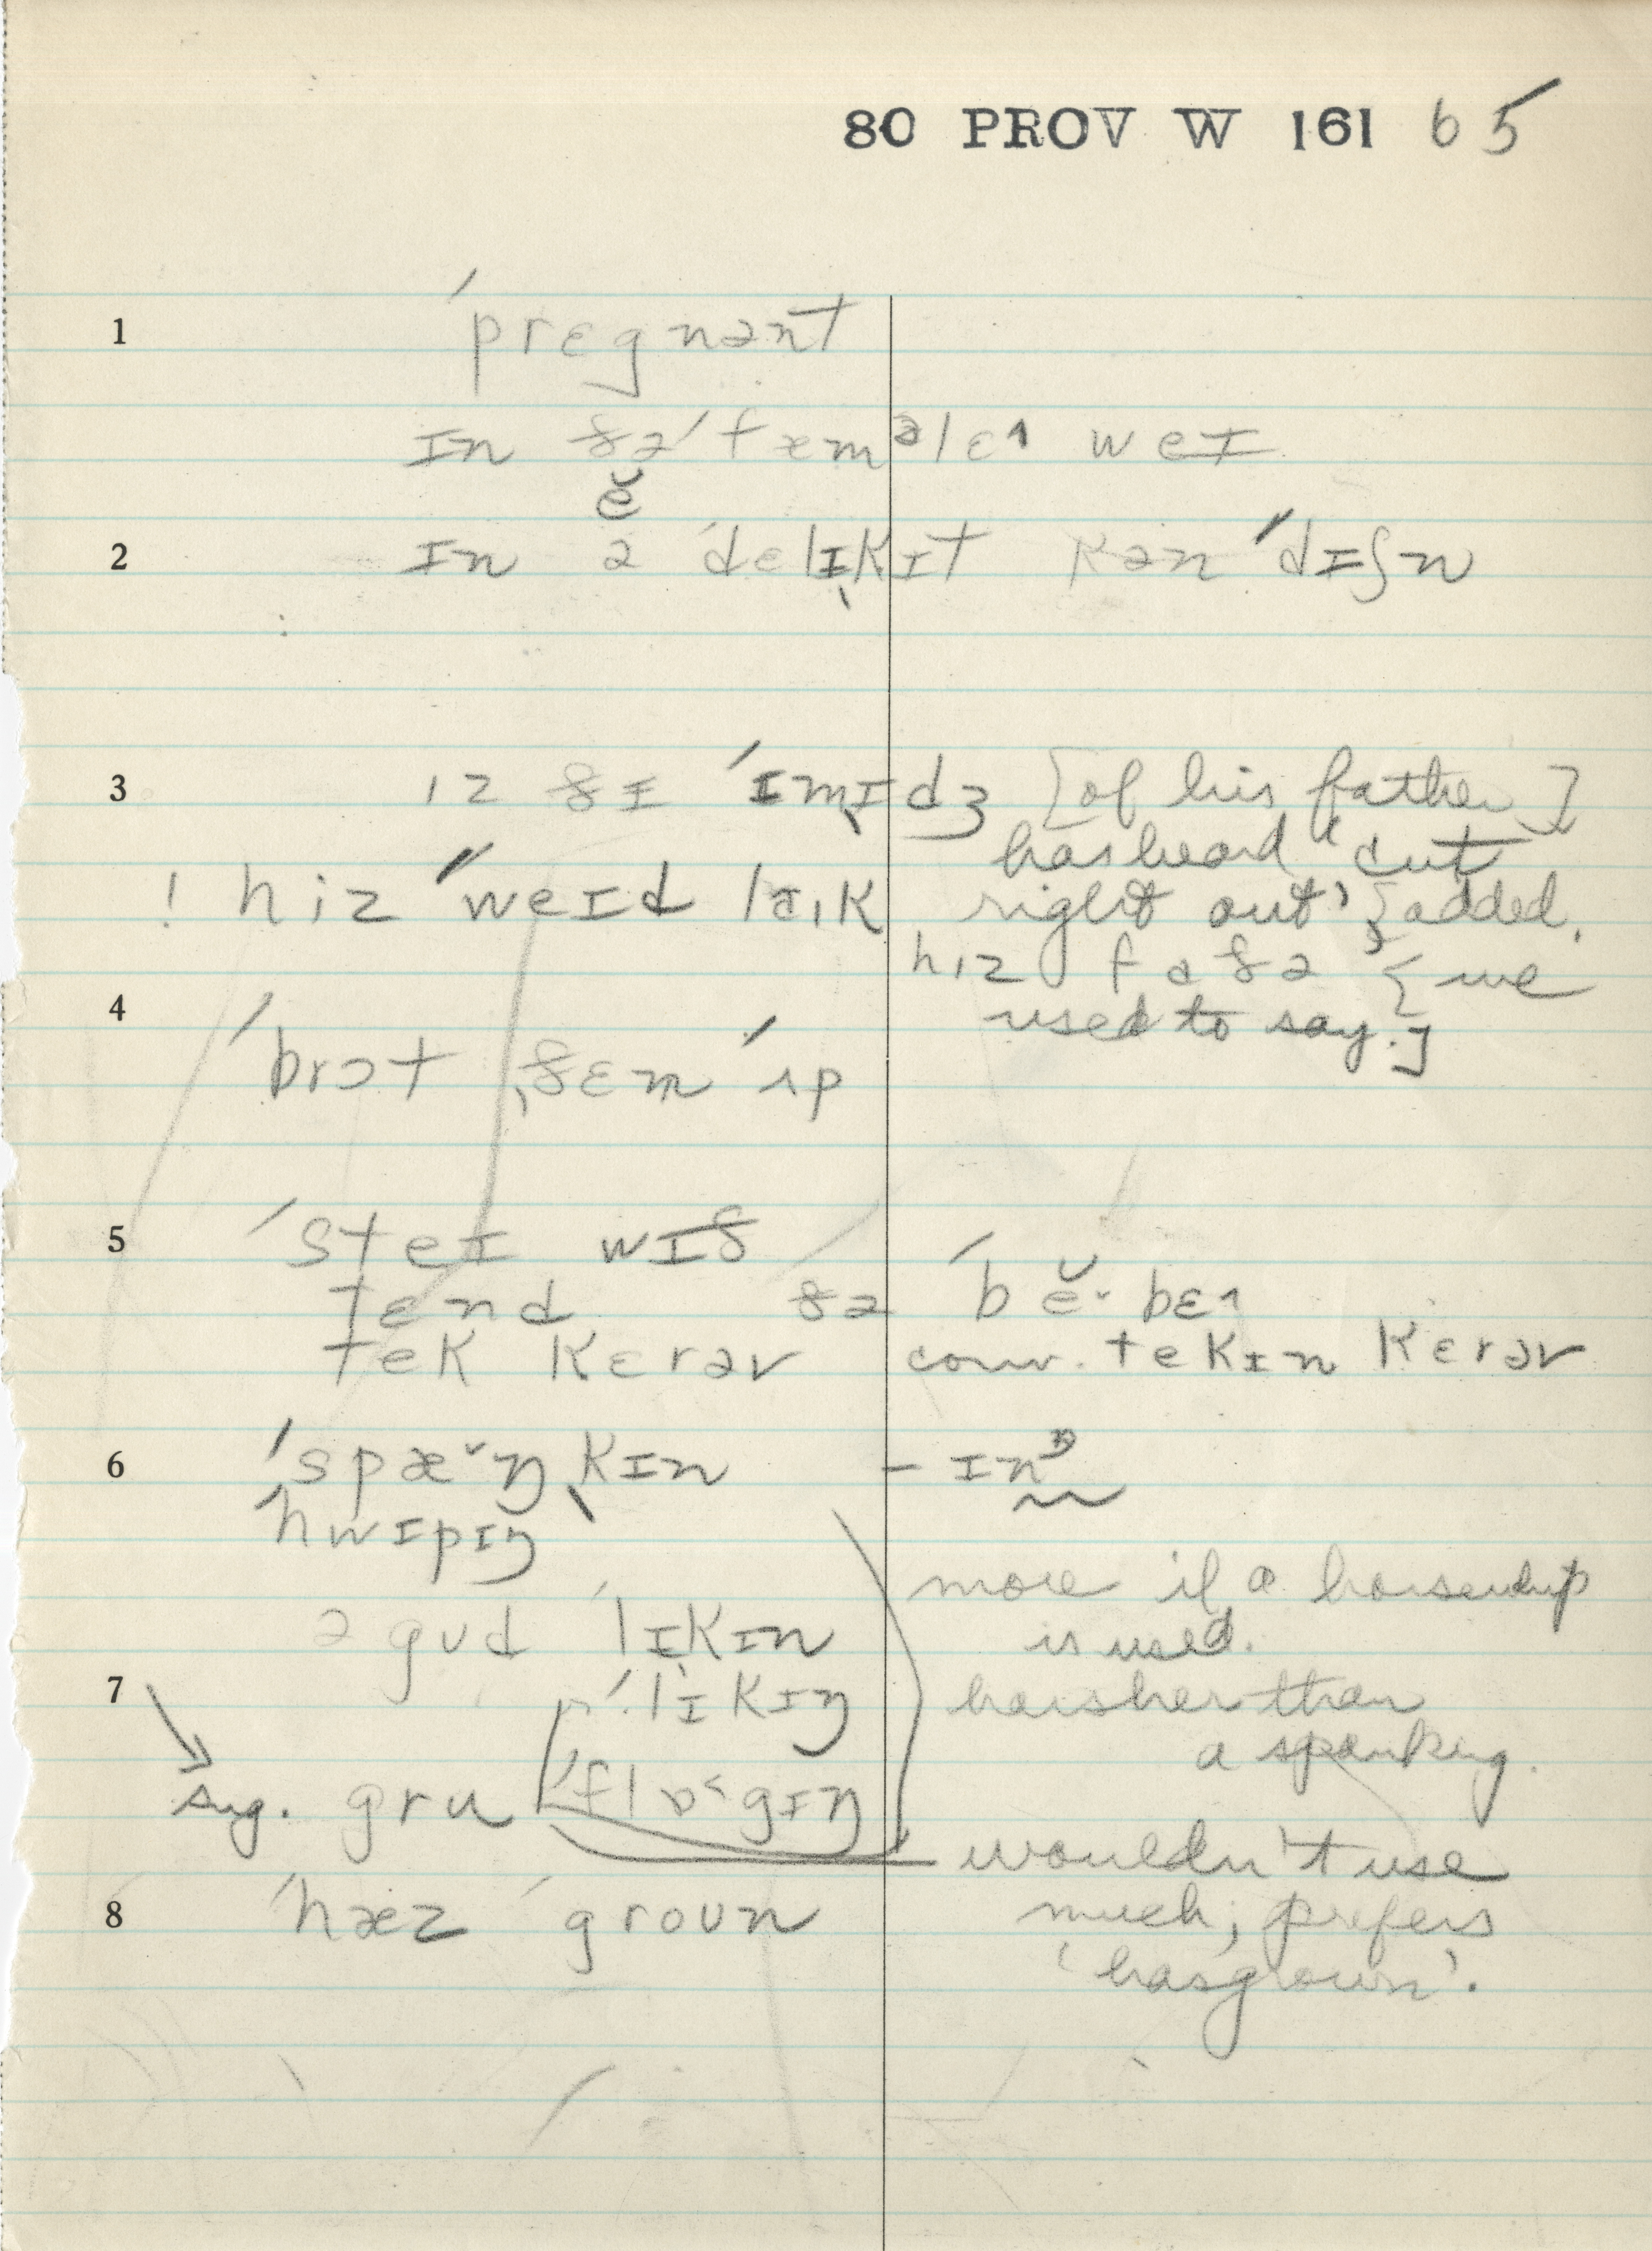 80 PROV W 161 65
1 ˈprɛgnənt
ɪn ðə ˈfæmᵊlɛ˄ weɪ
ĕ
2 ɪn ə ˈdɛlɪkɪt kənˈdɪʃn
3 ɪz ðɪ ˈɪmɪdʒ [of his father]
has heard "cut
! hiz ˈweɪd laɪk right out" {added.
hɪz faðə {we
4 used to say.]
ˈbrɔt ˌðɛm ˈʌp
5 ˈsteɪ wɪð
tɛnd ðə ˈbĕˑbɛ˄
tek kɛrəv conv. tekɪn kɛrəv
6 ˈspæ˅ŋˌkɪn – ɪnᵑ
ˈhwɪpɪŋ
more if a horsewhip
ə gud ˈlɪkɪn is used.
7 ˈlɪkɪŋ harsher than
a spanking.
sug. gru ˈflɒ˂gɪŋ
wouldn't use
8 ˈhæz ˈgroun much; prefers
'has grown'.